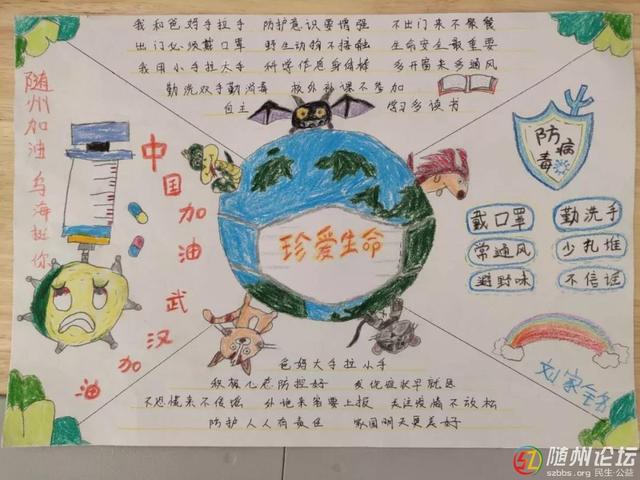 我和爸妈手拉手 防护意识要增强 不出门来不聚餐
出门必须戴口罩 野生动物不接触 生命安全最重要
我用小手拉大手 科学作息身体棒 多开窗来多通风
勤洗双手勤消毒 校外补课不参加
自主 学习多读书
随州加油 乌海挺你
中国加油 武汉加油
珍爱生命
防病毒
戴口罩 勤洗手
常通风 少扎堆
避野味 不信谣
爸妈大手拉小手
积极心态防控好 发现症状早就医
不恐慌来不信谣 外地来客要上报 关注疫情不放松
防护人人有责任 家园明天更美好
刘家
随州论坛
szbbs.org 民生·公益